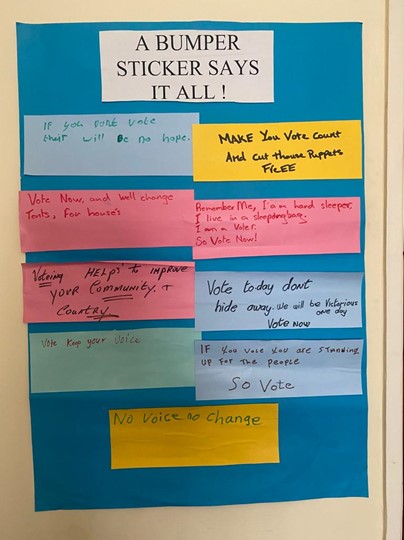 A BUMPER
STICKER SAYS
IT ALL !
If you Dont Vote
their Will Be no hope.
MAKE You Vote Count
And Cut those Puppets
FREE
Vote Now, and well change
Tents, for house's
Remember Me, I'am a hard sleeper,
I live in a sleeping bag,
I am a Voter.
So Vote Now!
Votening HELPS to improve
YOUR COMMUNITY. +
COUNTRY
Vote today dont
hide away. We will be Victorious
one day
Vote Now
Vote Keep your Voice
IF You Vote You are STANDING
UP FOR THE People
SO Vote
No Voice no change